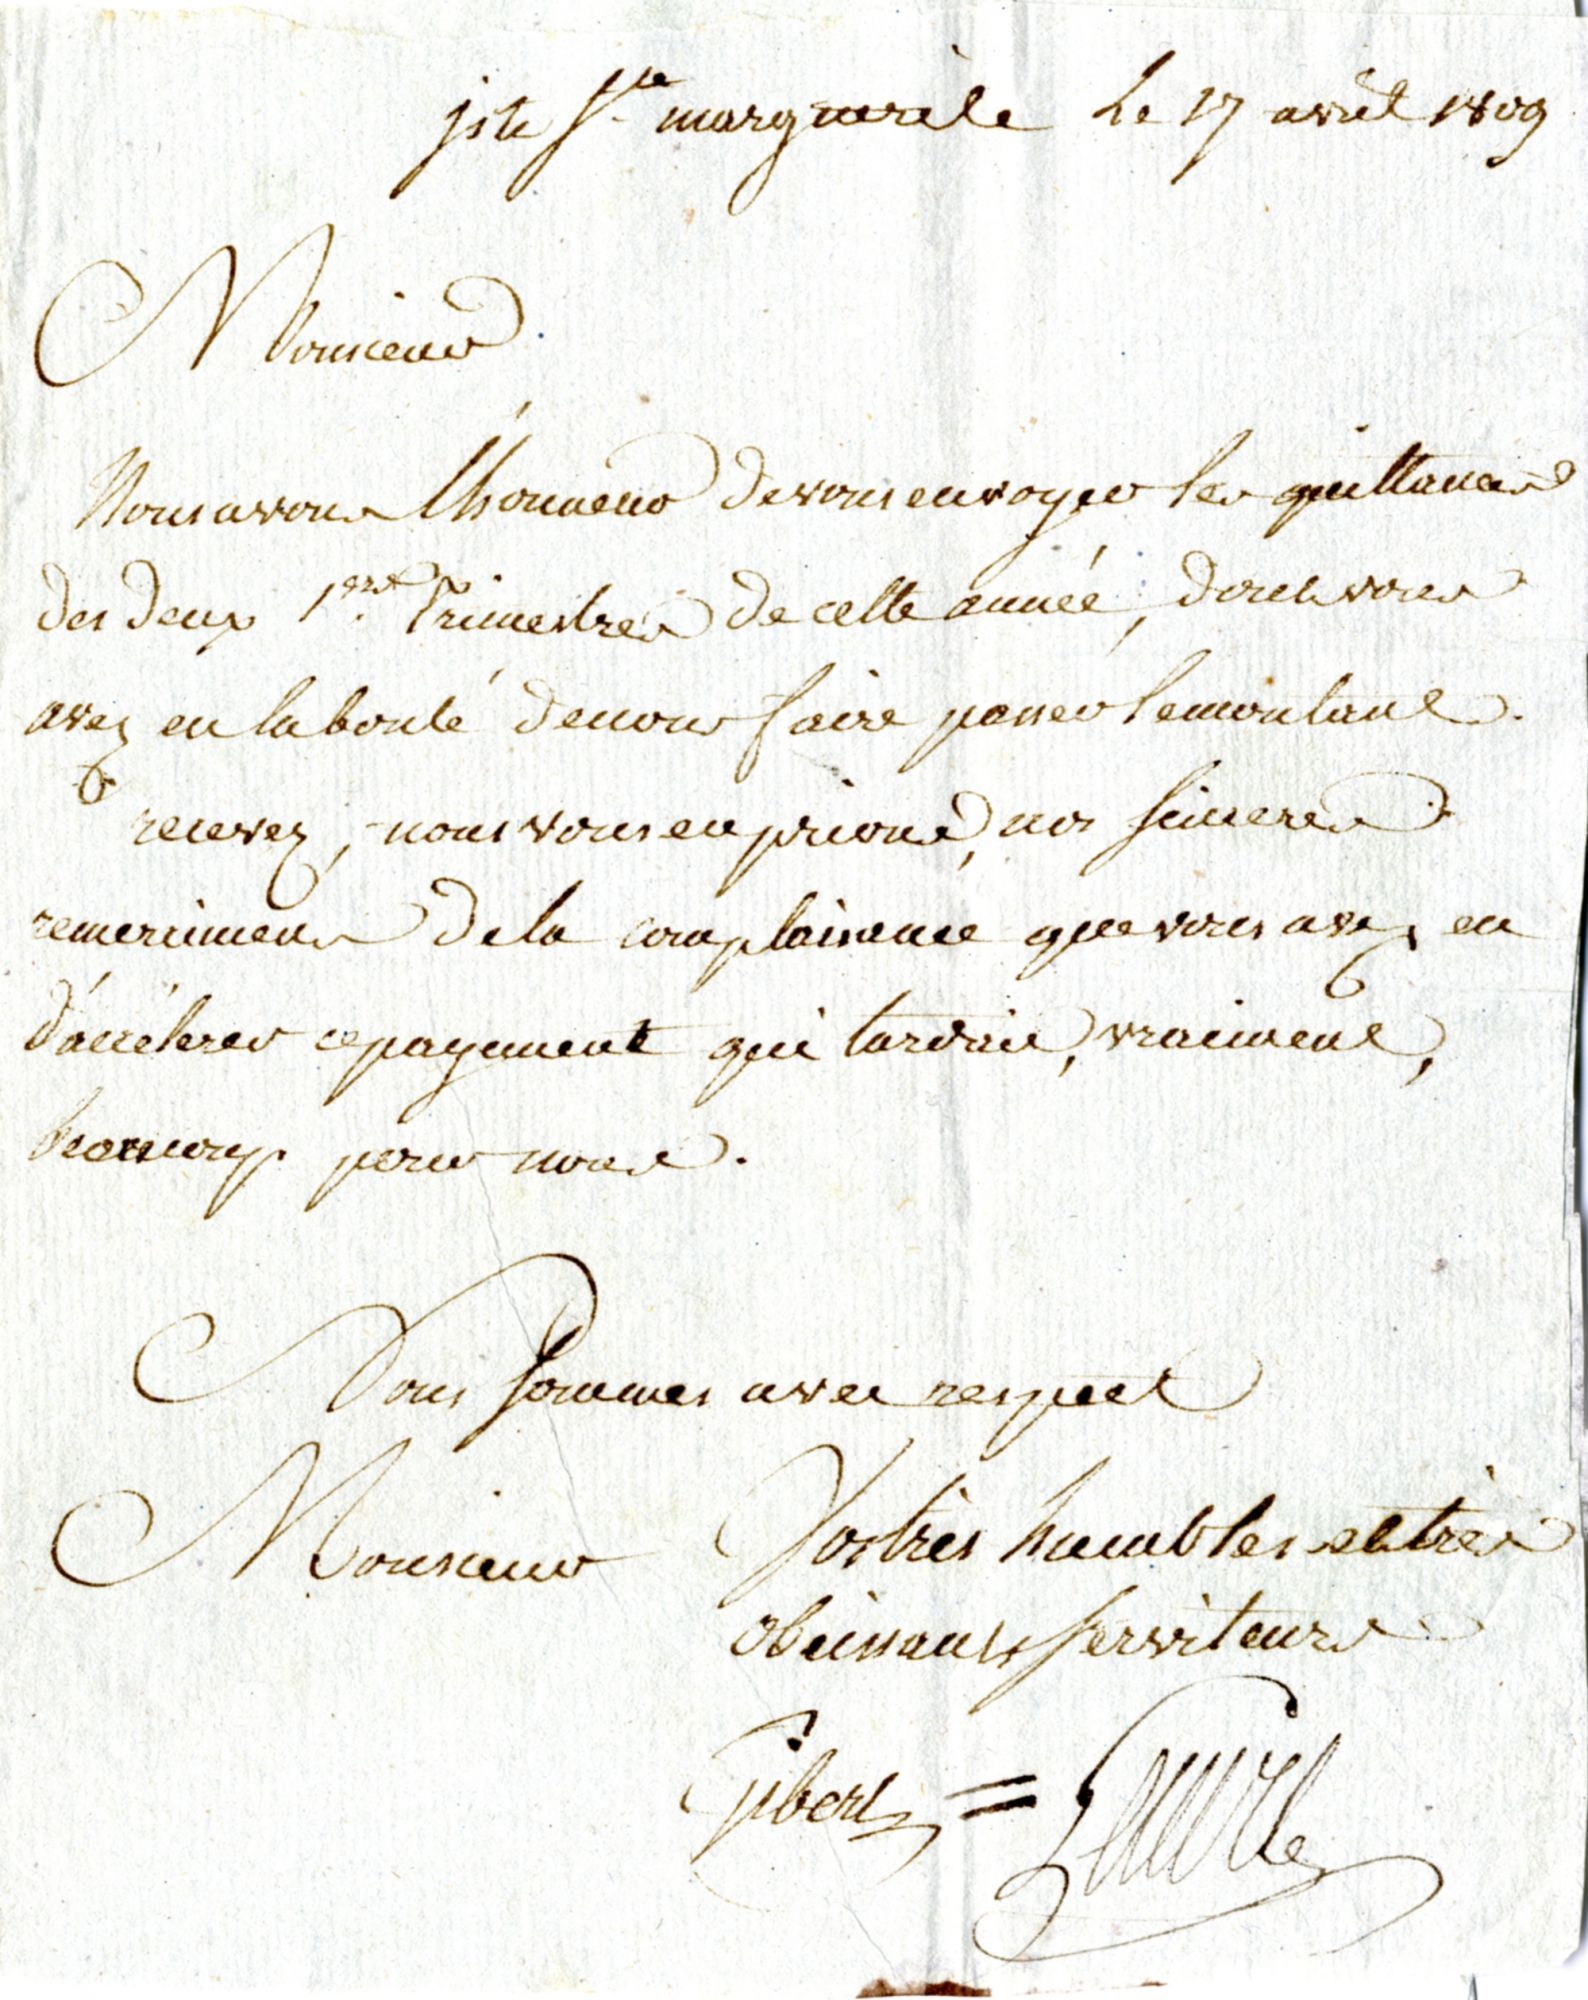 jsle Ste marguerite Le 17 avril 1809
Monsieur
Nous avons l'honneur de vous envoyer les quittances
des deux 1ers Trimestres de cette année, dont vous
avez eu la bonté de nous faire passer le montant.
recevez, nous vous en prions, nos sinceres
remercimens de la complaisance que vous avez eu
d'accélerer ce payement qui tardait, vraiment,
beaucoup pour nous.
Nous sommes avec respect
Monsieur Vos très humbles et très
obeissants serviteurs
Gibert =